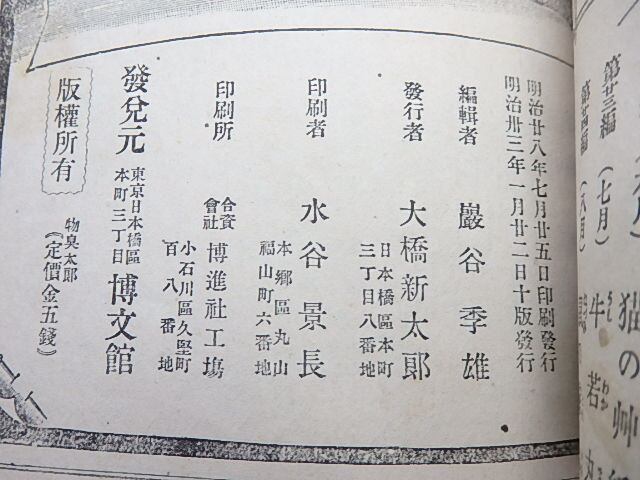 第廿三編（七月）
猫の艸
第廿四編（八月）
牛若丸
明治廿八年七月廿五日印刷發行
明治卅三年一月廿二日十版發行
編輯者 巖谷季雄
發行者 大橋新太郎
日本橋區本町
三丁目八番地
印刷者 水谷景長
本鄉區丸山
福山町六番地
印刷所 合資會社 博進社工塲
小石川區久堅町
百八番地
發兌元 東京日本橋區本町三丁目 博文館
版權所有
物臭太郎
（定價金五錢）